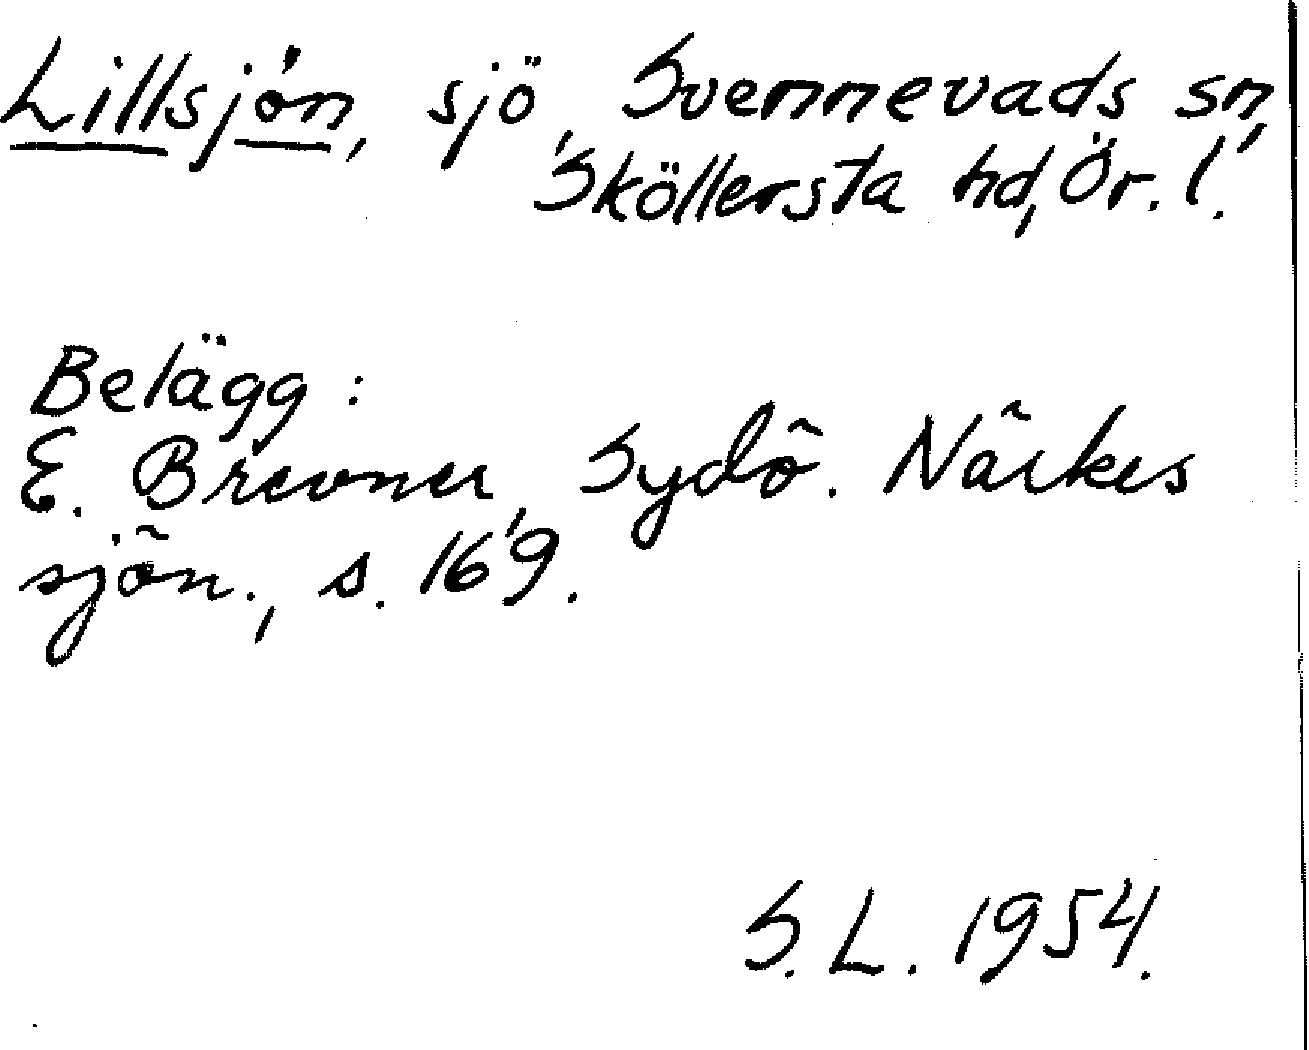 Lillsjön, sjö, Svennevads sn,
Sköllersta hd, Ör. l.
Belägg:
E. Brevner, Sydö. Närkes
sjön., s. 169.
S. L. 1954.